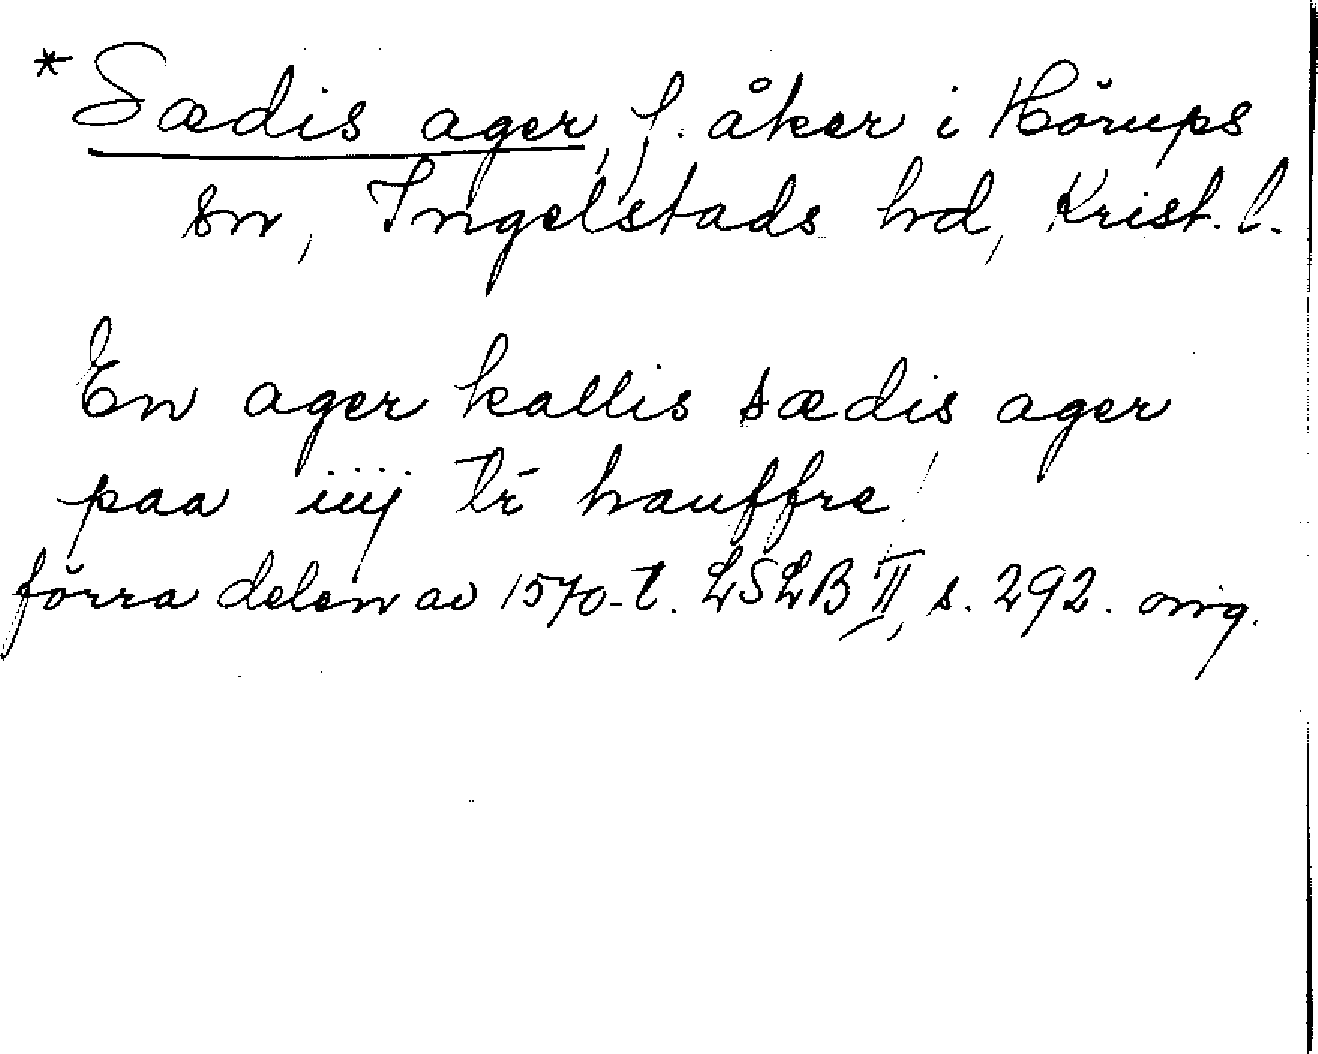 *Sædis ager, f. åker i Hörups
sn, Ingelstads hd, Krist. l.
En ager kallis sædis ager
paa iiij tr̄ hauffre
förra delen av 1570-t. LSLB II, s. 292. orig.